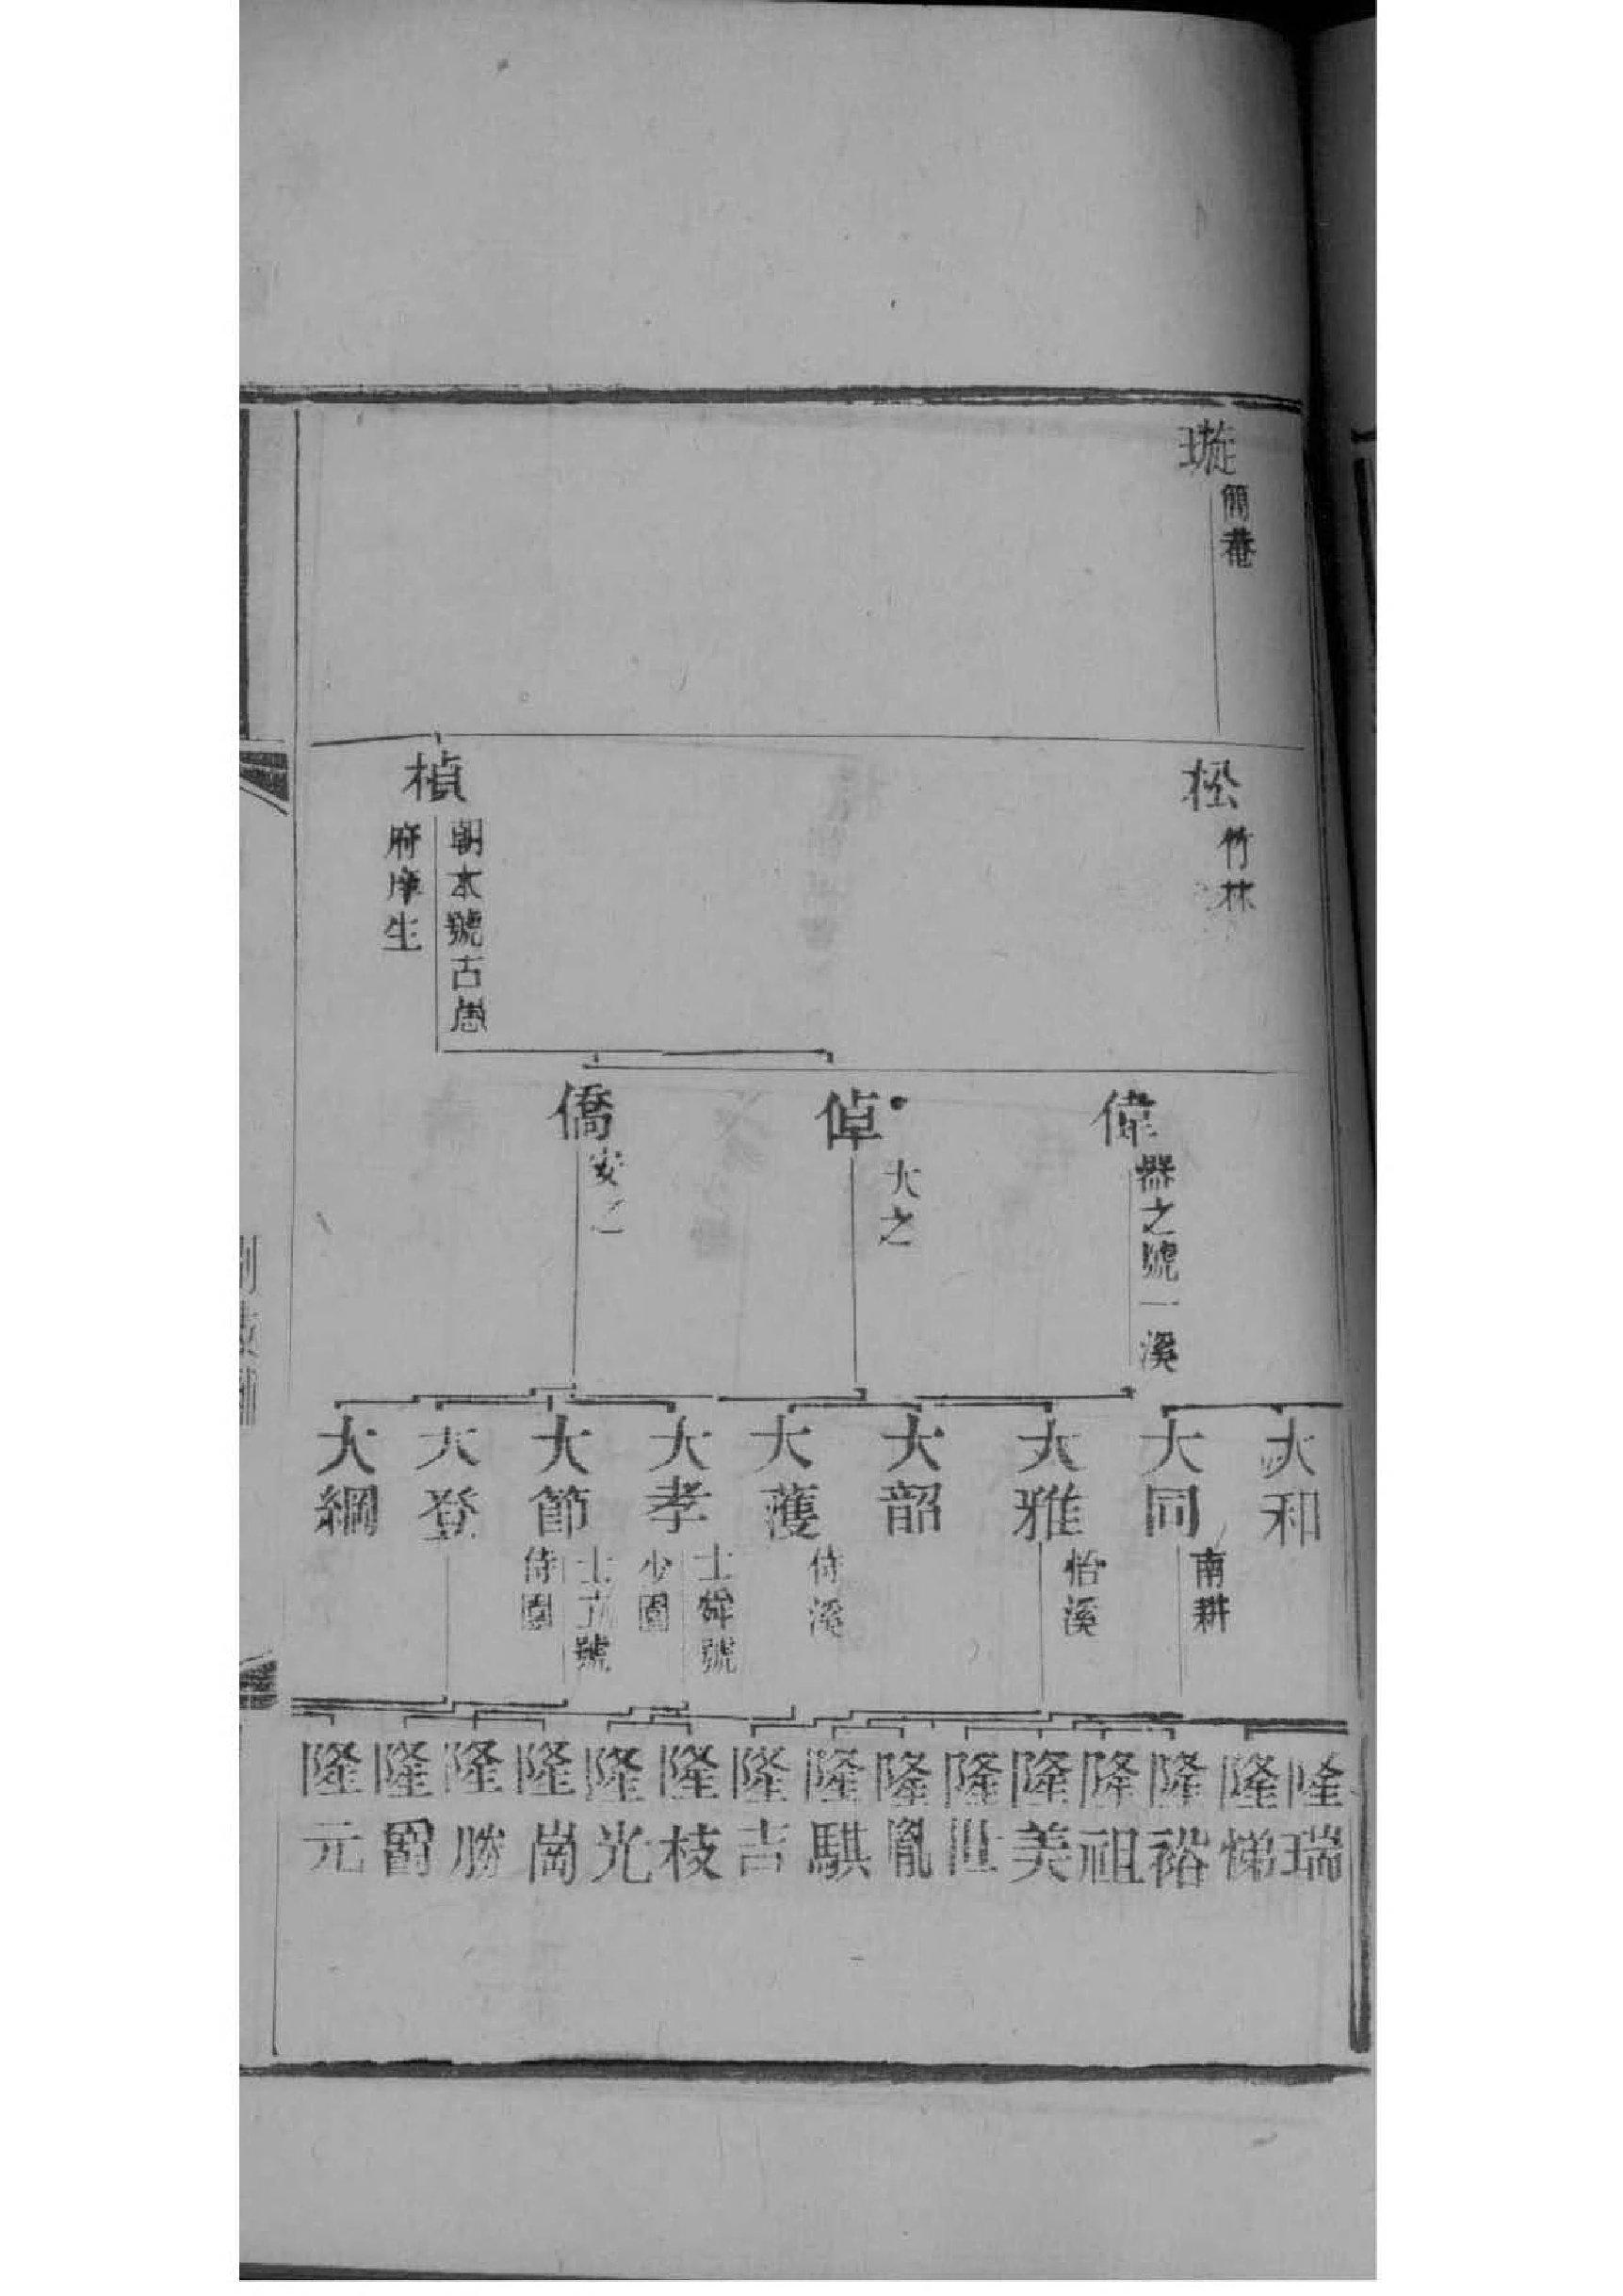 璇
簡菴
松
竹林
楨
朝木號古愚
府庠生
偉
器之號一溪
倬
大之
僑
安之
大和
大同
南耕
大雅
怡溪
大韶
大䕶
侍溪
大孝
士舜號
少園
大節
號
侍園
大登
大綱
隆瑞
隆悌
隆裕
隆祖
隆美
隆世
隆胤
隆騏
隆吉
隆枝
隆光
隆崗
隆勝
隆爵
隆元